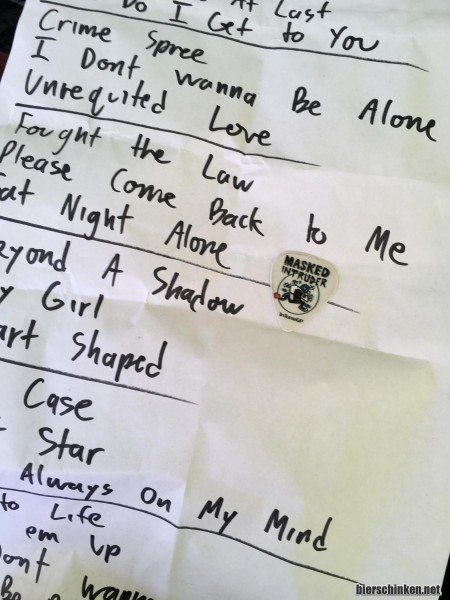 Do I Get to You
At Last
Crime Spree
I Dont Wanna Be Alone
Unrequited Love
Fought the Law
Please Come Back to Me
at Night Alone
eyond A Shadow
y Girl
art Shaped
Case
Star
Always On My Mind
to Life
em up
ont wann
MASKED
INTRUDER
bierschinken.net